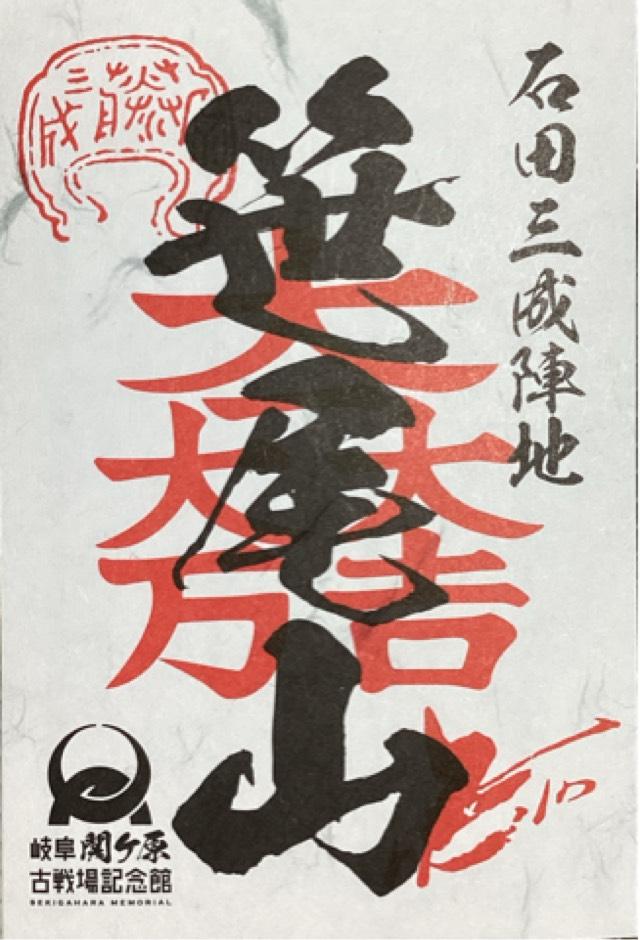 石田三成陣地
笹尾山
大一大万大吉
三成
岐阜関ケ原
古戦場記念館
SEKIGAHARA MEMORIAL